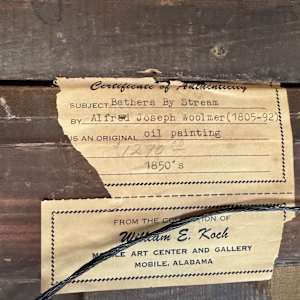 Certificate of Authenticity
SUBJECT: Bathers By Stream
BY Alfred Joseph Woolmer(1805-92)
IS AN ORIGINAL oil painting
1850's
FROM THE COLLECTION OF
William E. Koch
MOBILE ART CENTER AND GALLERY
MOBILE, ALABAMA